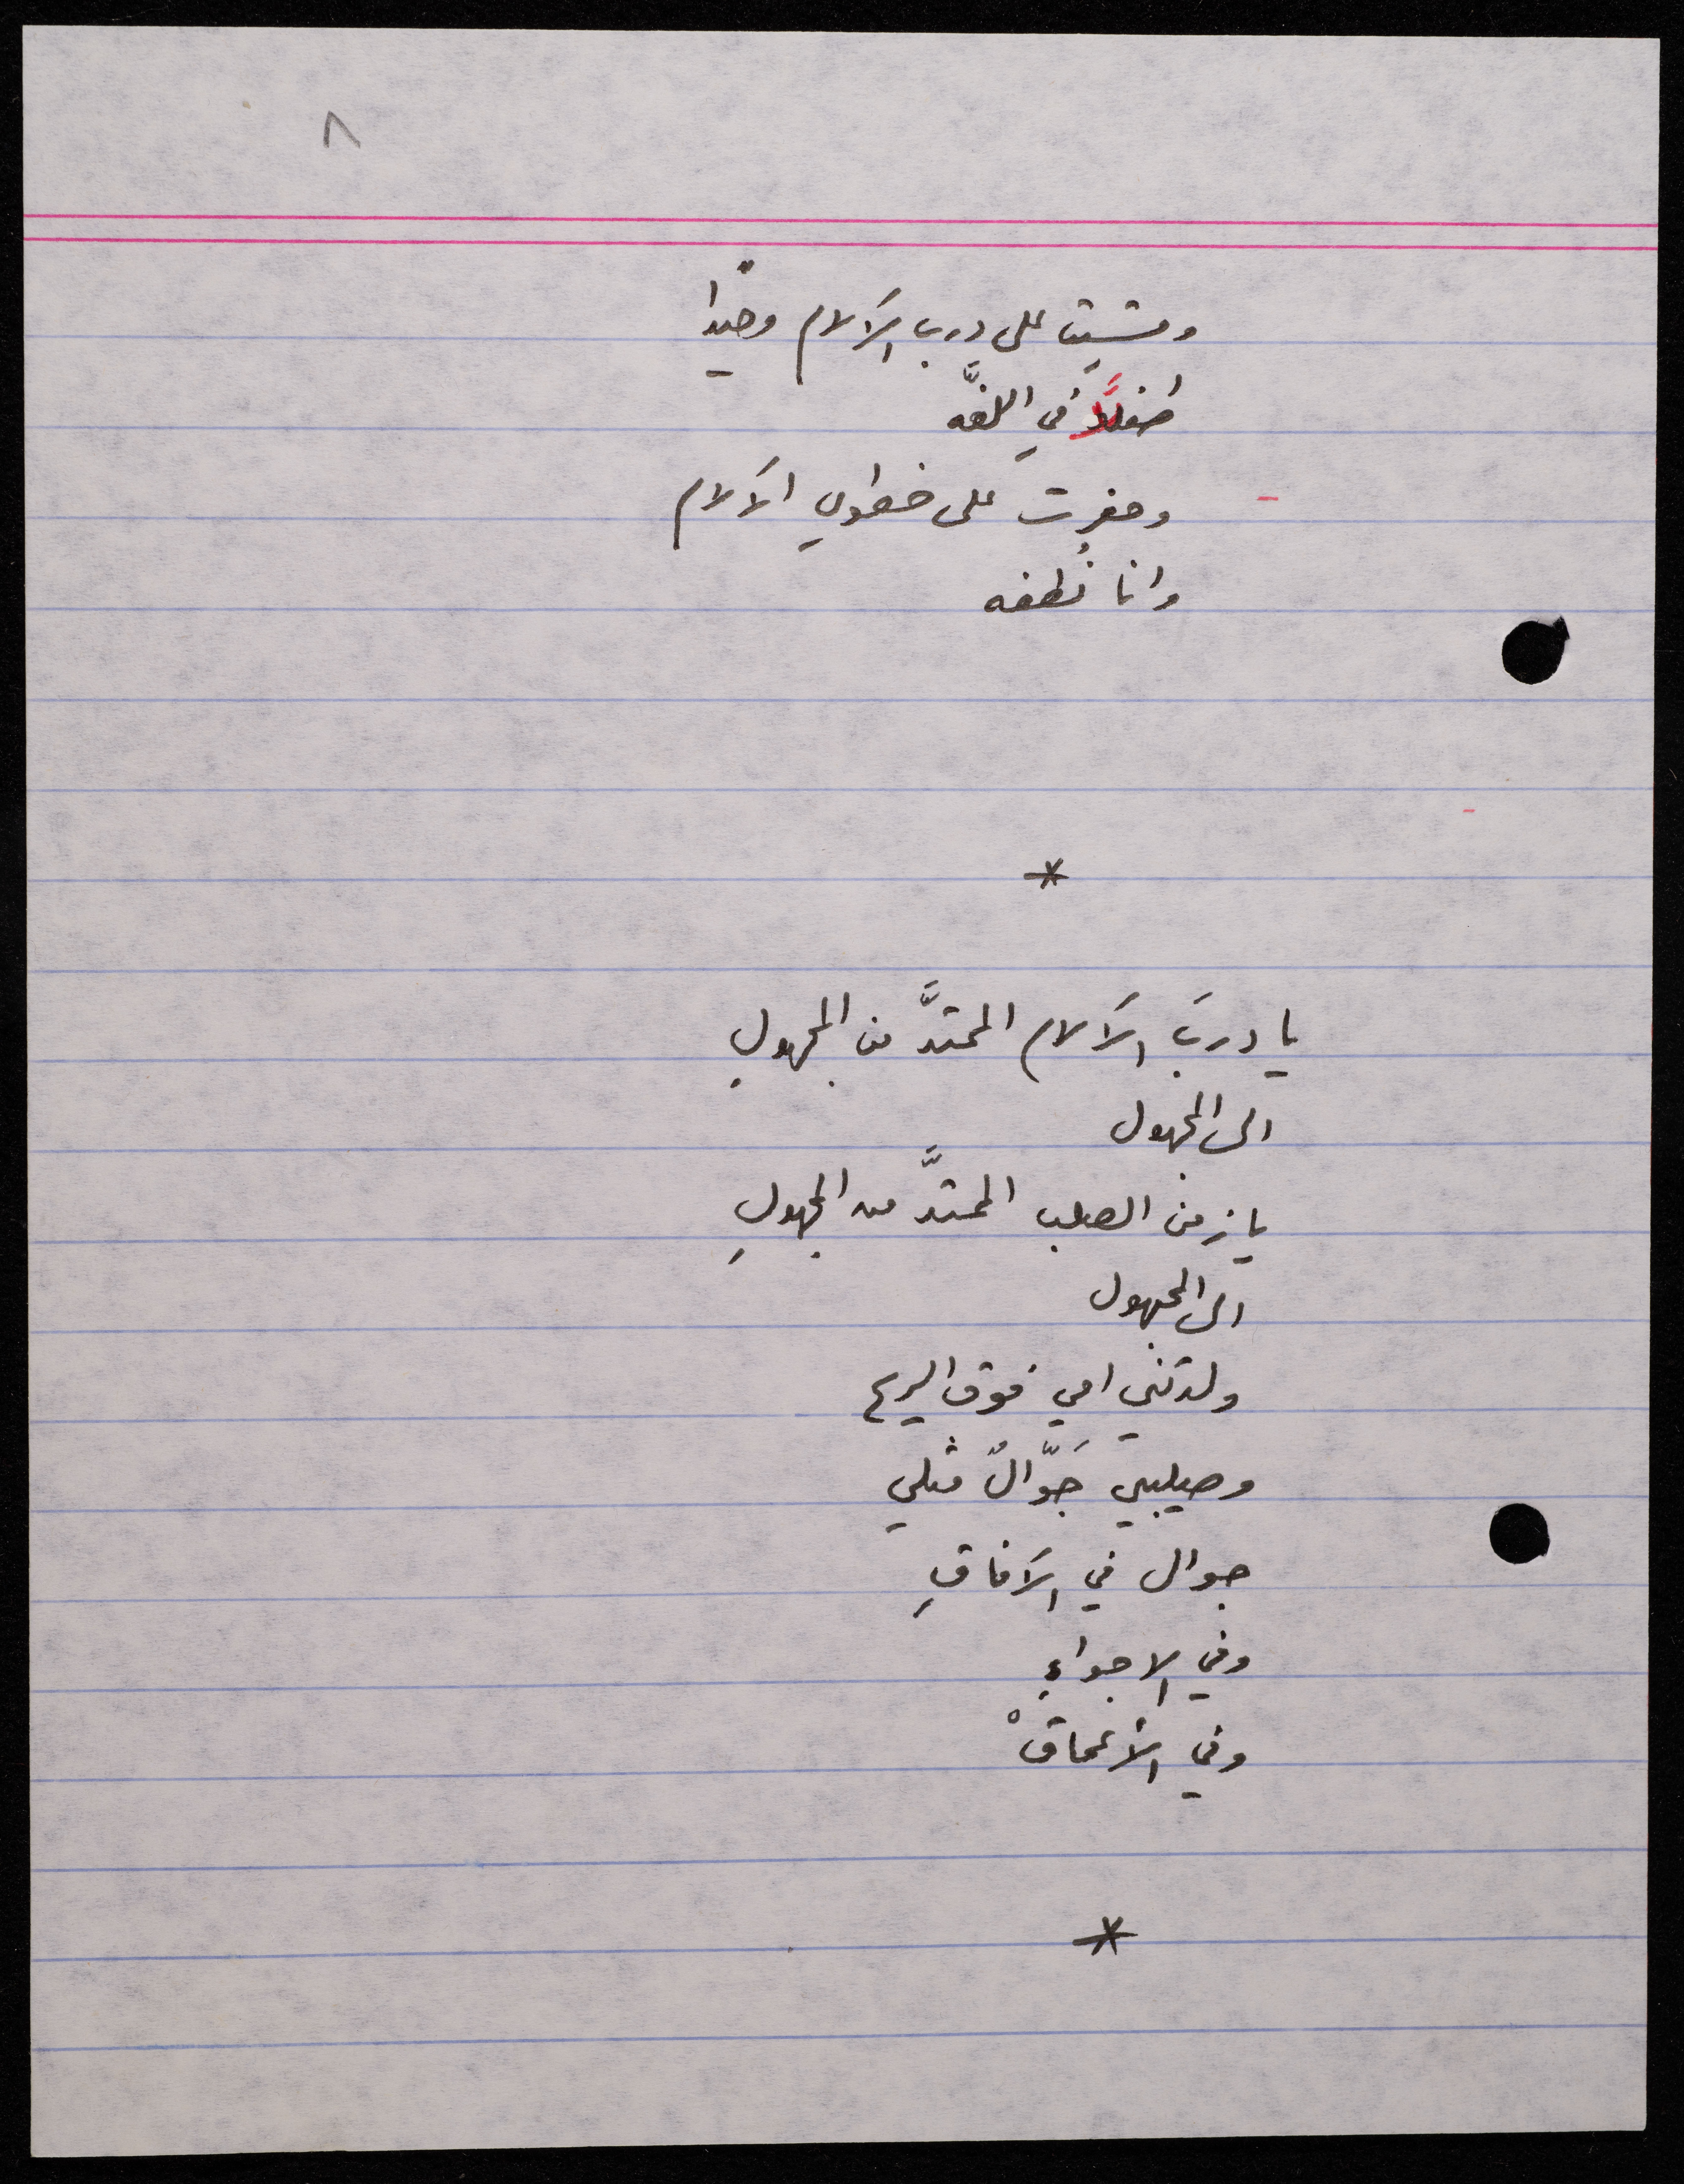 ٨
ومشيت على درب الآلام وحيدا
في اللفَّه
وحفرت على خطوي الآلام
وانا نُطفه
*
يا دربَ الآلام الممتدَّ من المجهولِ
الى المجهول
يا زمن الصلب الممتدَّ من المجهولِ
الى المجهول
ولدتني امي فوق الريح
وصليبي جَوَّالٌ مثلي
جوال في الآفاقِ
وفي الاجواءِ
وفي الأعماقْ
*